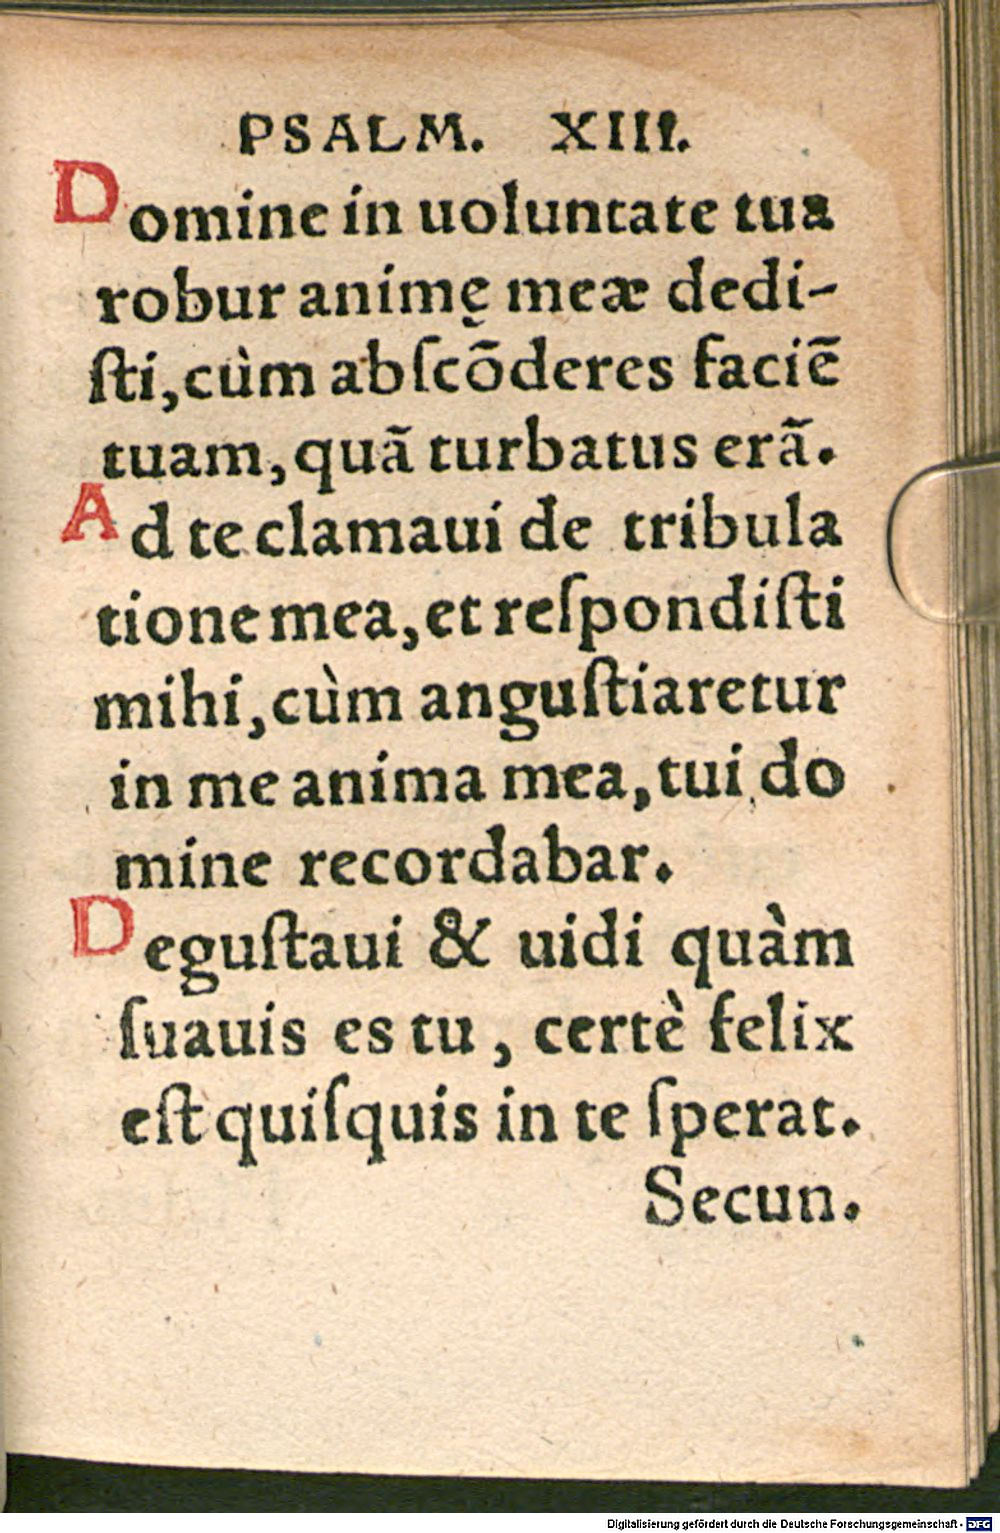 PSALM. XIII.
Domine in uoluntate tua
robur animę meæ dedi-
ſti, cùm abſcõderes faciẽ
tuam, quã turbatus erã.
Ad te clamaui de tribula
tione mea, et reſpondiſti
mihi, cùm anguſtiaretur
in me anima mea, tui do
mine recordabar.
Deguſtaui & uidi quàm
ſuauis es tu, certè felix
eſt quiſquis in te ſperat.
Secun.
Digitalisierung gefördert durch die Deutsche Forschungsgemeinschaft - DFG